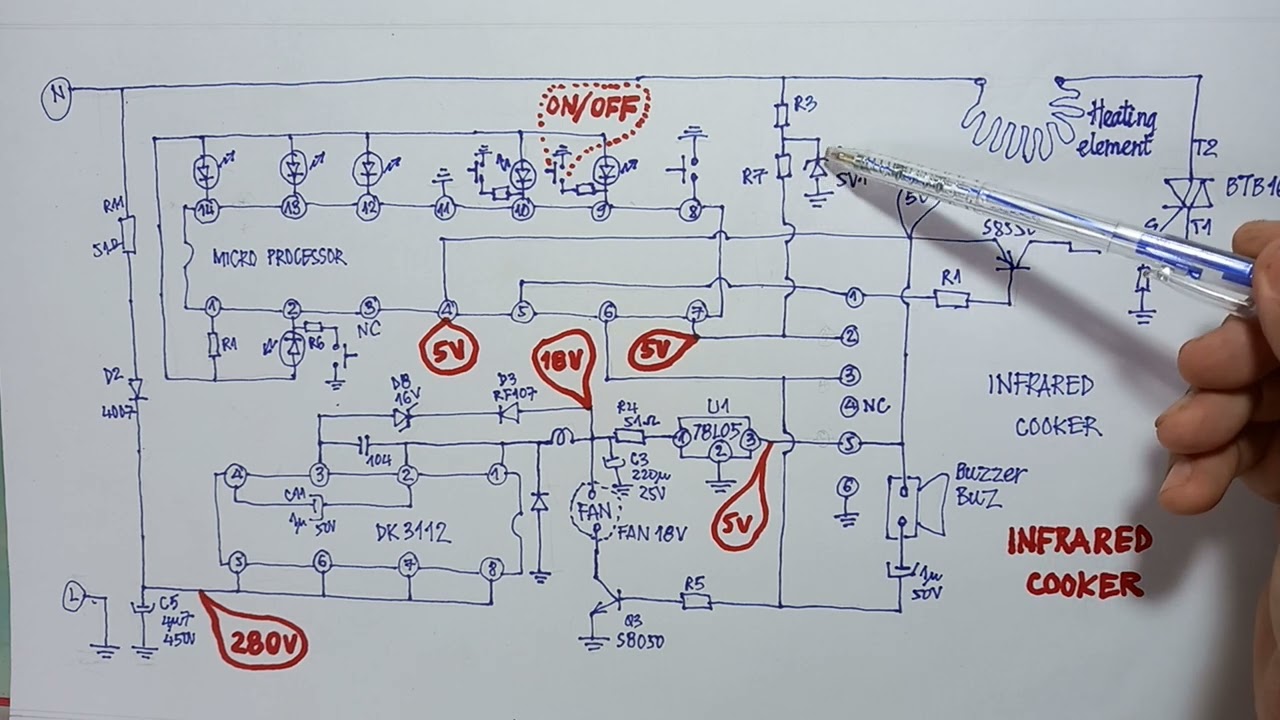 N
ON/OFF
R3
Heating
element
T2
R7
5V1
BTB16
G
T1
5V
14
13
12
11
10
9
8
R11
51Ω
MICRO PROCESSOR
R1
1
2
3
4
5
6
7
NC
R1
R6
1
2
3
4 NC
5
6
5V
18V
5V
D2
4007
D8
16V
D3
RF107
R4
51Ω
U1
78L05
1
2
3
INFRARED
COOKER
104
C3
220µ
25V
4
3
2
1
C11
1µ
50V
DK3112
FAN
FAN 18V
5V
Buzzer
BUZ
INFRARED
COOKER
5
6
7
8
L
C5
4µ7
450V
280V
R5
Q3
S8050
1µ
50V